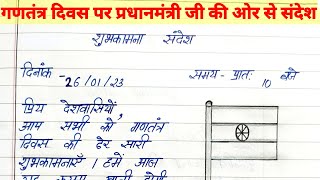 गणतंत्र दिवस पर प्रधानमंत्री जी की ओर से संदेश
शुभकामना संदेश
दिनांक- 26/01/23 समय- प्रातः 10 बजे
प्रिय देशवासियों,
आप सभी को गणतंत्र
दिवस की ढेर सारी
शुभकामनाएँ। हमें आज